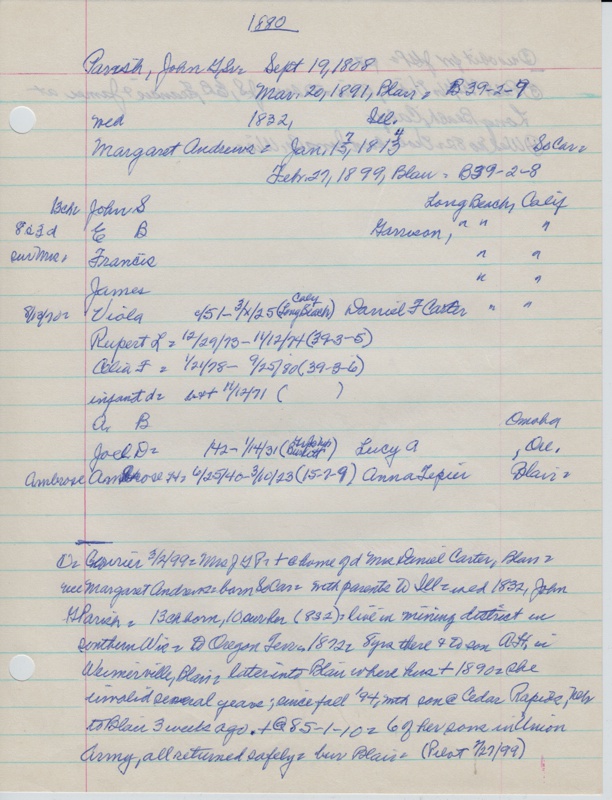 1880
Parish, John G Sr = Sept 19, 1808
Mar. 20, 1891, Blair = B39-2-9
med 1832, Ill.
Margaret Andrews = Jan. 17, 1814 So Car =
Feb. 27, 1899, Blair = B39-2-8
13ch = John S Long Beach, Calif
8s 3d E B Garrison, " " "
sur Mrs = Francis " "
James " "
8/13/70 = Viola 4/51 - 3/ /25 (Long Beach Calif) Daniel F Carter " "
Rupert L = 12/29/73 - 11/12/74 (39-3-5)
Celia F = 1/21/78 - 9/25/80 (39-3-6)
infant d = b & + 11/12/71 ( )
A. B Omaha
Joel D = 1842 - 1/14/31 ( ) Lucy A , Ore.
Ambrose Ambrose H = 6/25/40 - 3/10/23 (15-7-9) Anna Blair =
O = Courier 3/2/99 = Mrs J G P = + @ home of d Mrs Daniel Carter, Blair =
nee Margaret Andrews = born So Car = with parents to Ill = med 1832, John
G Parish = 13ch born, 10 surher (8s2) = live in mining district in
southern Wis = to Oregon Terr = 1872 = 8yrs there & to son A.H. in
, Blair = later into Blair where hus + 1890 = she
invalid several years; since fall '94, with son @ Cedar Rapids, Nebr
to Blair 3 weeks ago. + @ 85-1-10 = 6 of her sons in Union
Army, all returned safely = bur Blair = (Pilot 7/27/99)